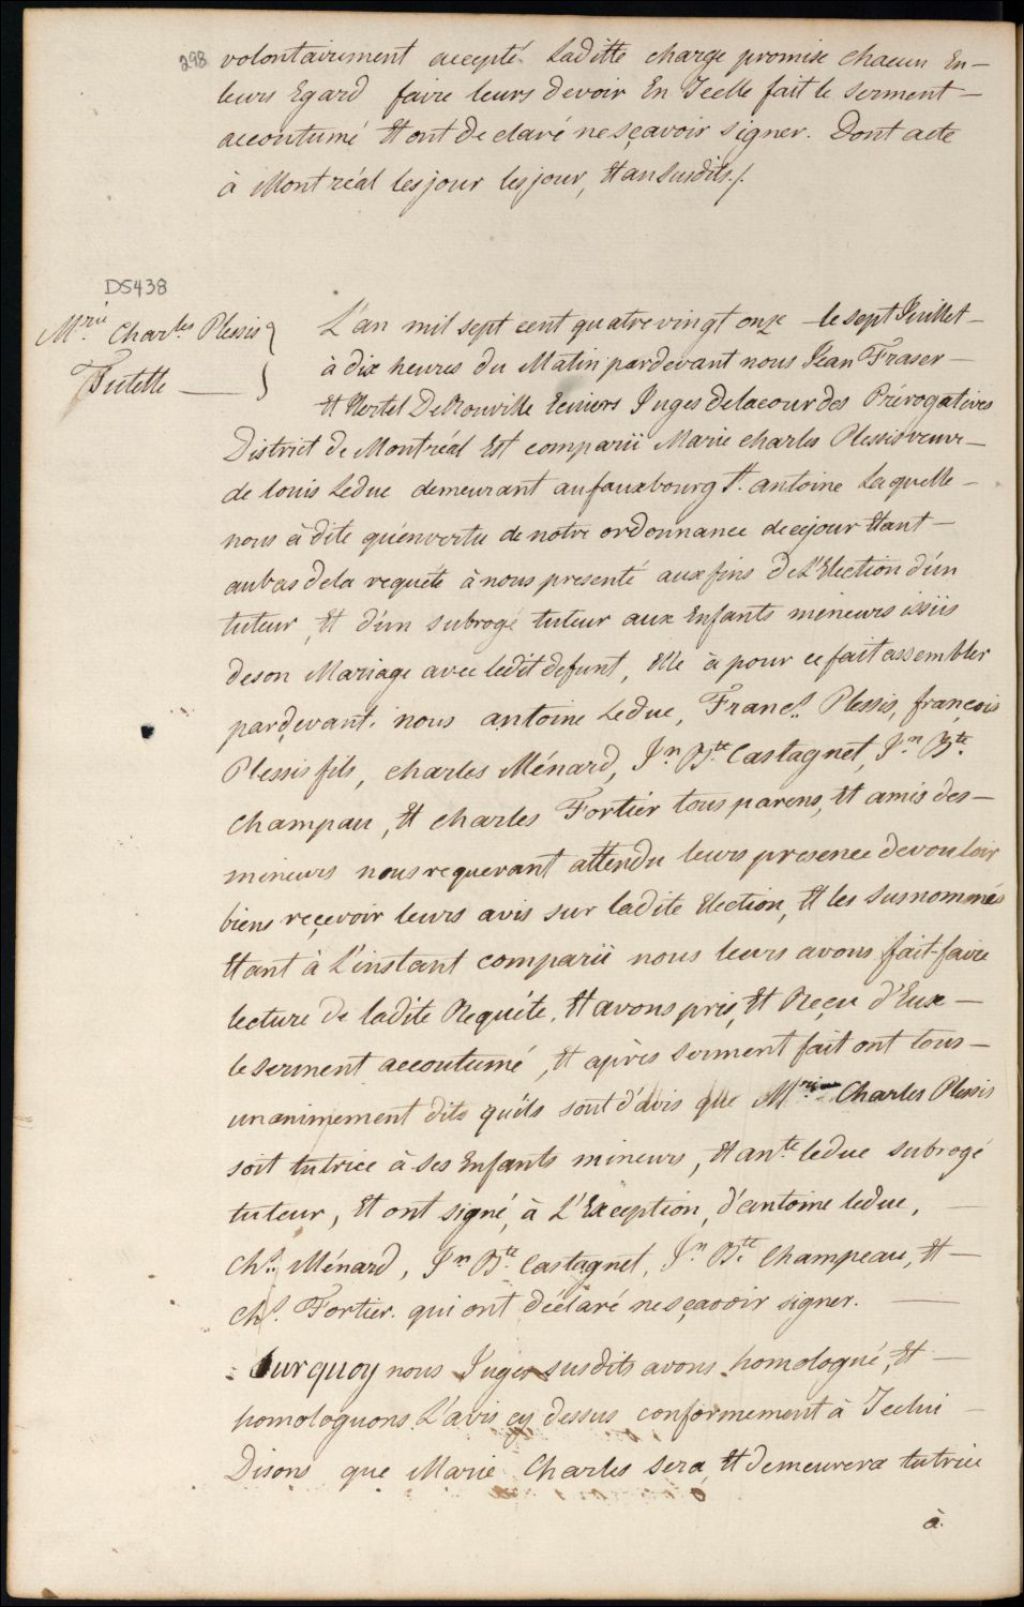 298
volontairement accepté laditte charge promise chacun En—
leurs Egard faire leurs devoir En Icelle fait le serment—
accoutumé Et ont De claré ne sçavoir signer. Dont acte
à Montréal les jour les jour, Et an susdits./.
DS438
Mrie Charles Plessis
Tutelle —
L'an mil sept cent quatre vingt onze — le sept Juillet—
à dix heures du Matin pardevant nous Jean Fraser—
Et Hertel De Rouville Ecuiers Juges de la cour des Prérogatives
District de Montréal Est comparüe Marie charles Plessis veuve—
de louis Leduc demeurant au fauxbourg St. antoine Laquelle—
nous à dite qu'en vertu de notre ordonnance de ce jour Etant—
au bas de la requête à nous presenté aux fins De L'Election d'un
tuteur, Et d'un subrogé tuteur aux Enfants mineurs issüs
de son Mariage avec ledit defunt, Elle à pour ce fait assembler
pardevant nous antoine Leduc, Francs. Plessis, françois
Plessis fils, charles Ménard, Jn. Bte. Castagnet, Jn. Bte.
champau, Et charles Fortier tous parens, Et amis des—
mineurs nous requerant attendu leurs presence de vouloir
biens reçevoir leurs avis sur ladite Election, Et les susnommés
Etant à L'instant comparüe nous leurs avons fait-faire
lecture De ladite Requête, Et avons pris, Et Reçu d'Eux—
le serment accoutumé, Et après serment fait ont tous—
unanimement dits qu'ils sont d'avis que Mrie Charles Plessis
soit tutrice à ses Enfants mineurs, Et ante. leduc subrogé
tuteur, Et ont signé, à L'Exception, d'antoine leduc, —
chs. Ménard, Jn. Bte. Castagnet, Jn. Bte. Champeau, Et—
chs. Fortier. qui ont déclaré ne sçavoir signer. —
: Surquoy nous Juges susdits avons homologué, Et—
homologuons L'avis cy dessus conformement à Icelui—
Disons que Marie Charles sera, Et demeurera tutrice
à